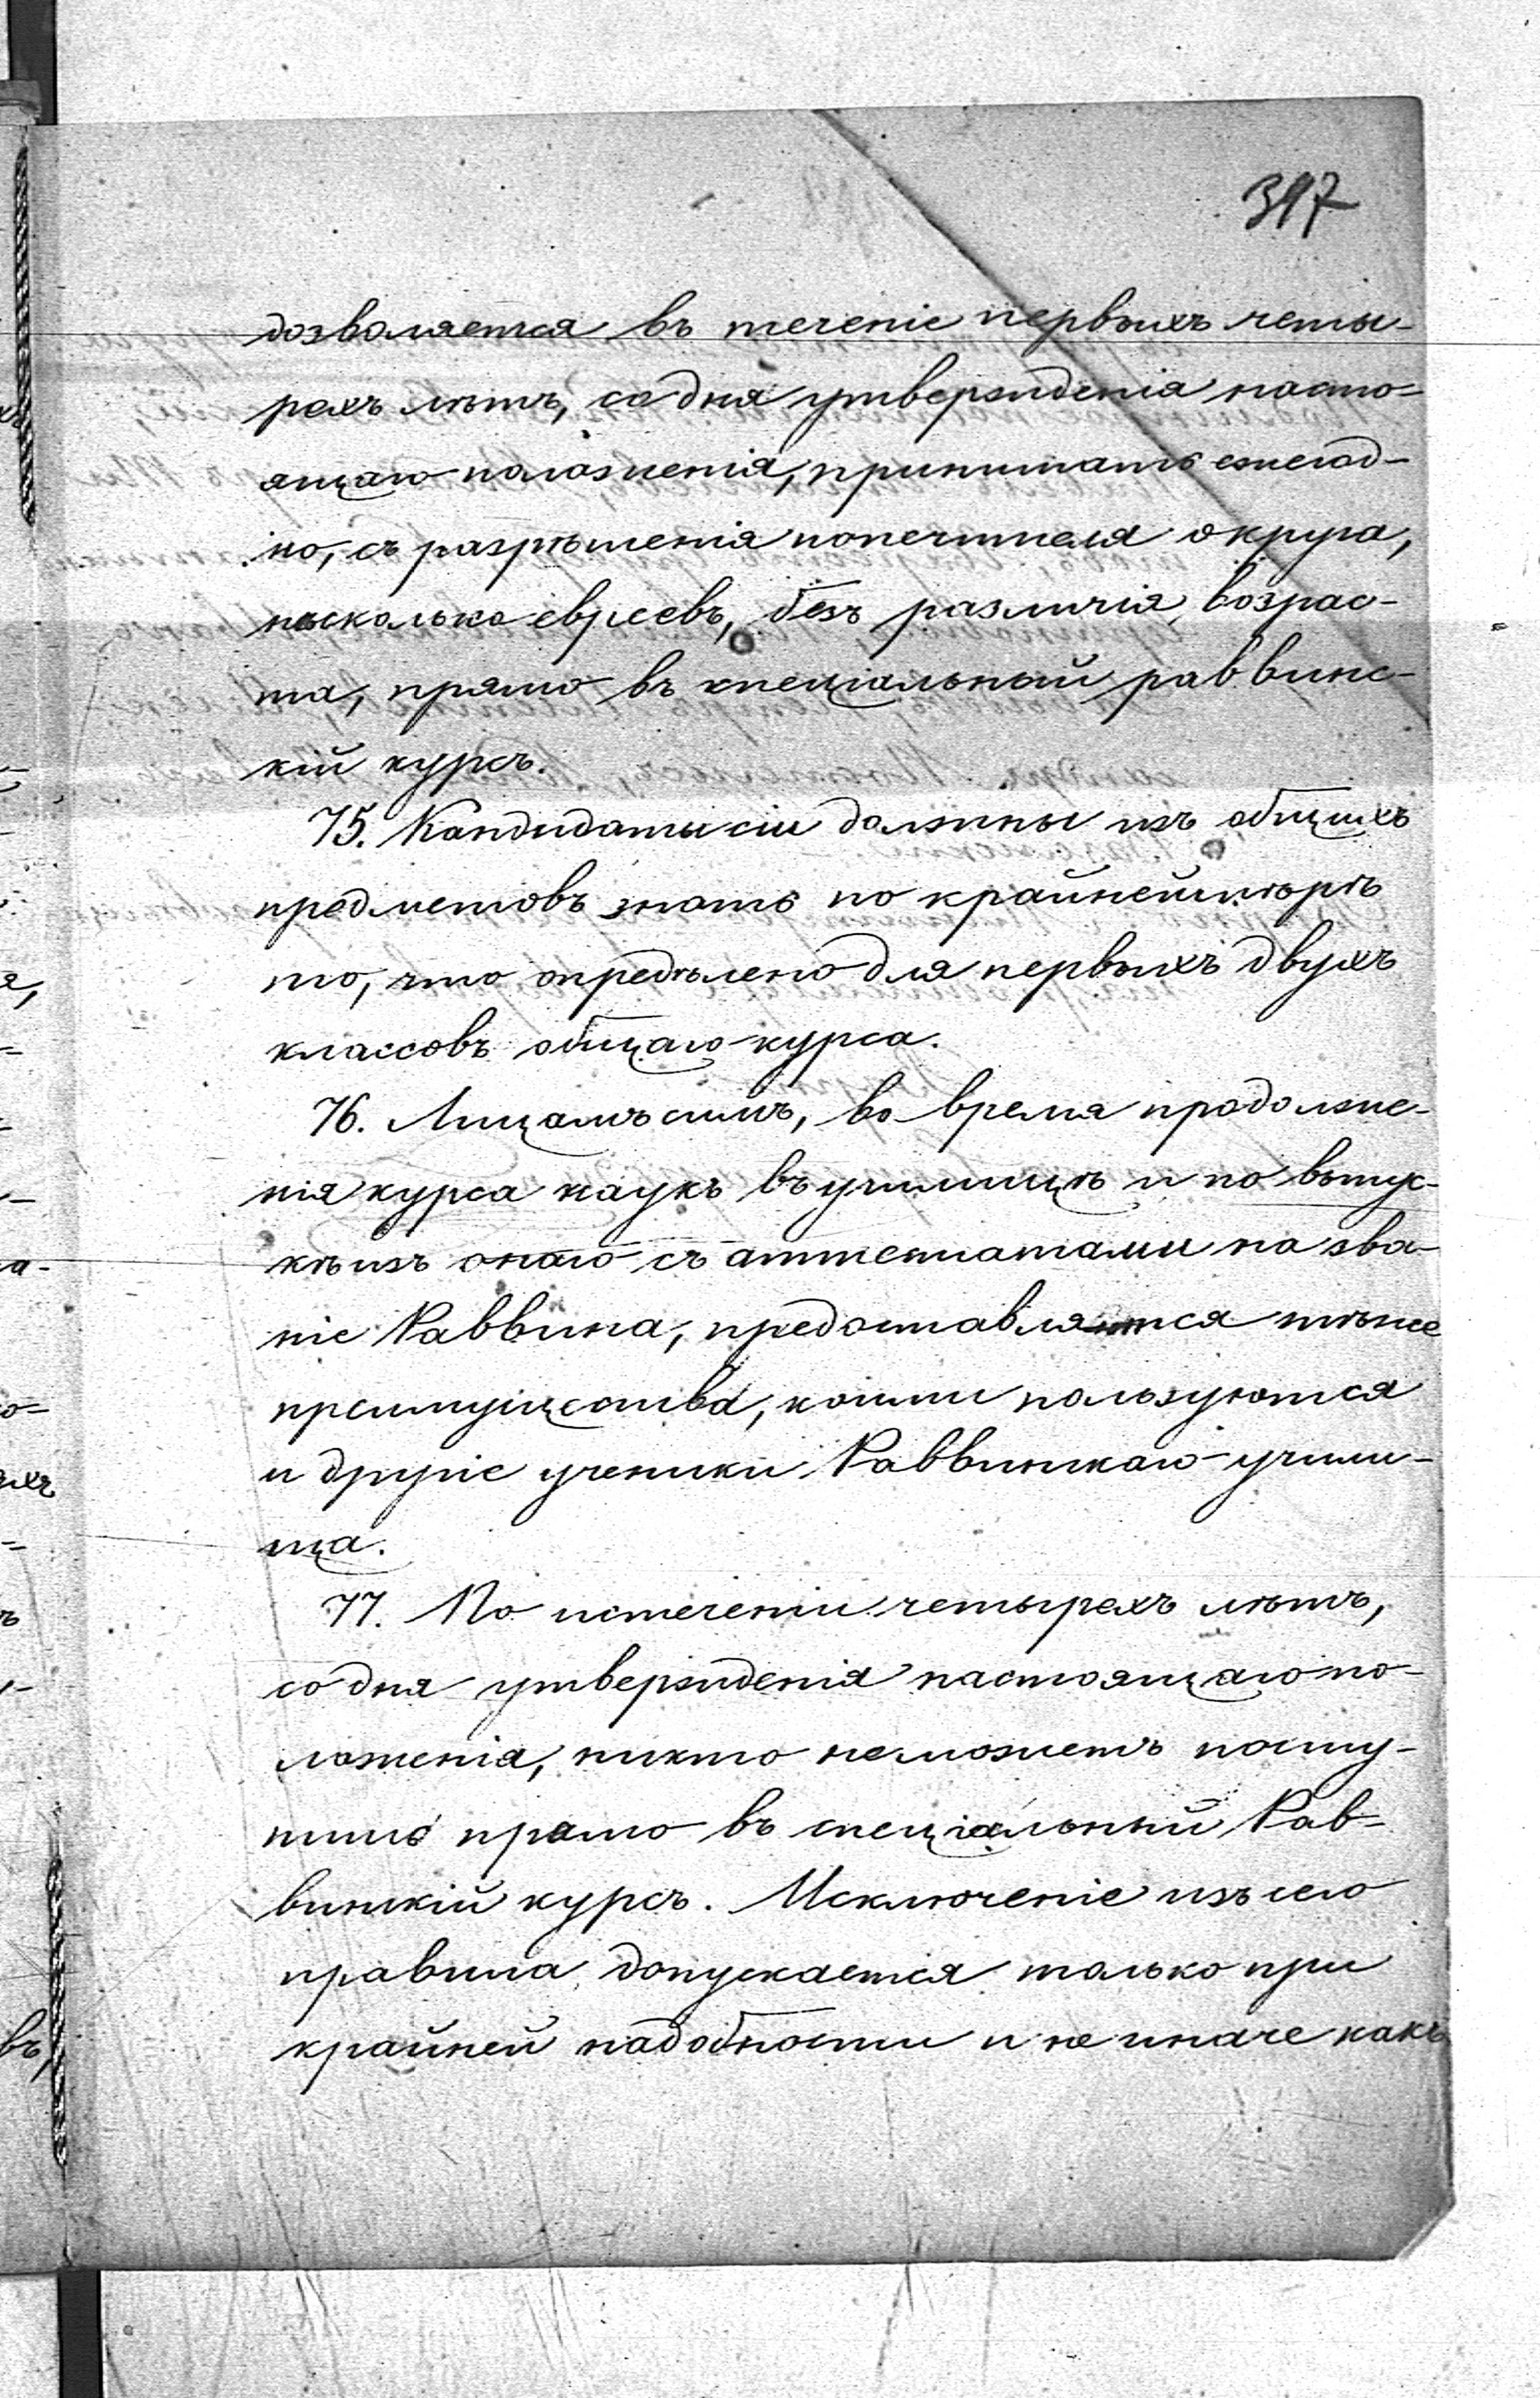 397
дозволяется въ теченіе первыхъ четы-
рехъ лѣтъ, со дня утвержденія насто-
ящаго положенія, принимать ежегод-
но, съ разрѣшенія попечителя округа,
нѣсколько евреевъ, безъ различія возрас-
та, прямо въ спеціальный раввинс-
кій курсъ.
75. Кандидаты сіи должны изъ общихъ
предметовъ знать по крайней мѣрѣ
то, что опредѣлено для первыхъ двухъ
классовъ общаго курса.
76. Лицамъ симъ, во время продолже-
нія курса наукъ въ училищѣ и по выпус-
кѣ изъ онаго съ аттестатами на зва-
ніе Раввина, предоставляются тѣже
преимущества, коими пользуются
и другіе ученики Раввинскаго учили-
ща.
77. По истеченіи четырехъ лѣтъ,
со дня утвержденія настоящаго по-
ложенія, никто не можетъ посту-
пить прямо въ спеціальный Рав-
винскій курсъ. Исключеніе изъ сего
правила допускается только при
крайней надобности и не иначе какъ